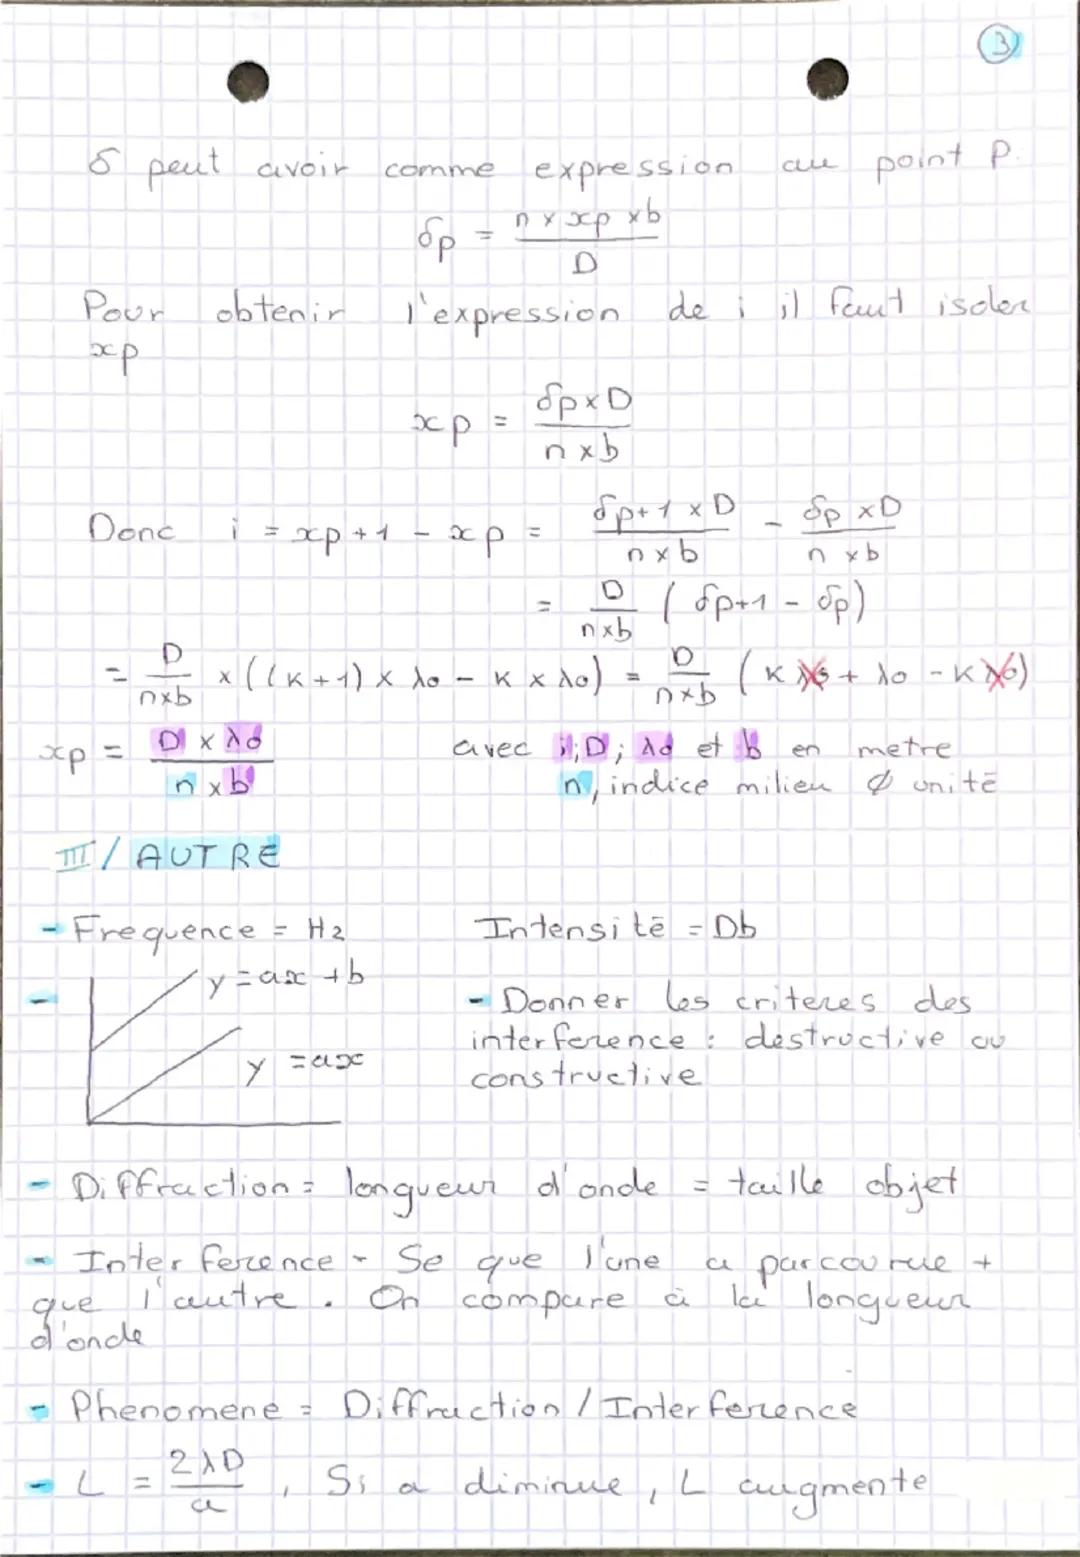 3
δ peut avoir comme expression au point P.
δp = (n × xp × b) / D
Pour obtenir l'expression de i il faut isoler
xp
xp = (δp × D) / (n × b)
Donc i = xp+1 - xp = (δp+1 × D) / (n × b) - (δp × D) / (n × b)
= D / (n×b) (δp+1 - δp)
= D / (n×b) × ((K+1) × λo - K × λo) = D / (n×b) (K λo + λo - K λo)
xp = (D × λo) / (n × b) avec i, D; λo et b en metre
n, indice milieu ∅ unité
III/ AUTRE
- Frequence = Hz Intensité = Db
- y = ax + b
y = ax
- Donner les criteres des
interference : destructive ou
constructive
- Diffraction = longueur d'onde = taille objet
- Interference - Se que l'une a parcourue +
que l'autre. On compare à la longueur
d'onde
- Phenomene = Diffraction / Interference
- L = 2λD / a, Si a diminue, L augmente